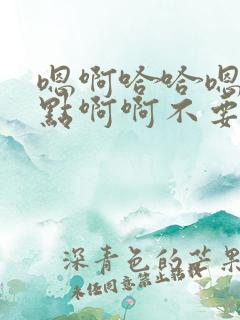 嗯啊哈哈嗯
點啊啊不要
深青色的芒果
未任同意禁止轉載